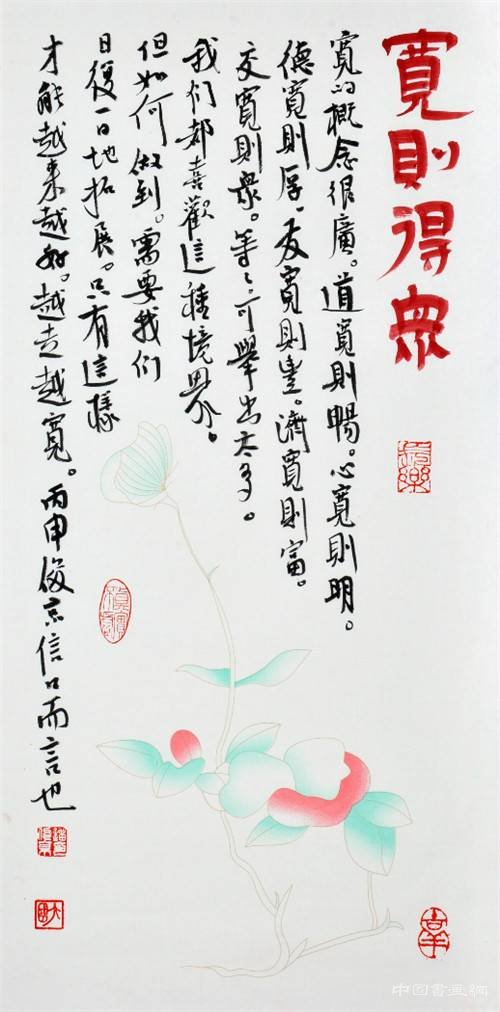 寬則得眾
寬的概念很廣。道寬則暢。心寬則明。
德寬則厚。友寬則豊。濟寬則富。
交寬則衆。等等可舉出太多。
我们都喜歡這種境界。
但如何做到。需要我们
日復一日地拓展。只有這樣
才能越来越好。越走越寬。丙申俊京信口而言也
中国書画網